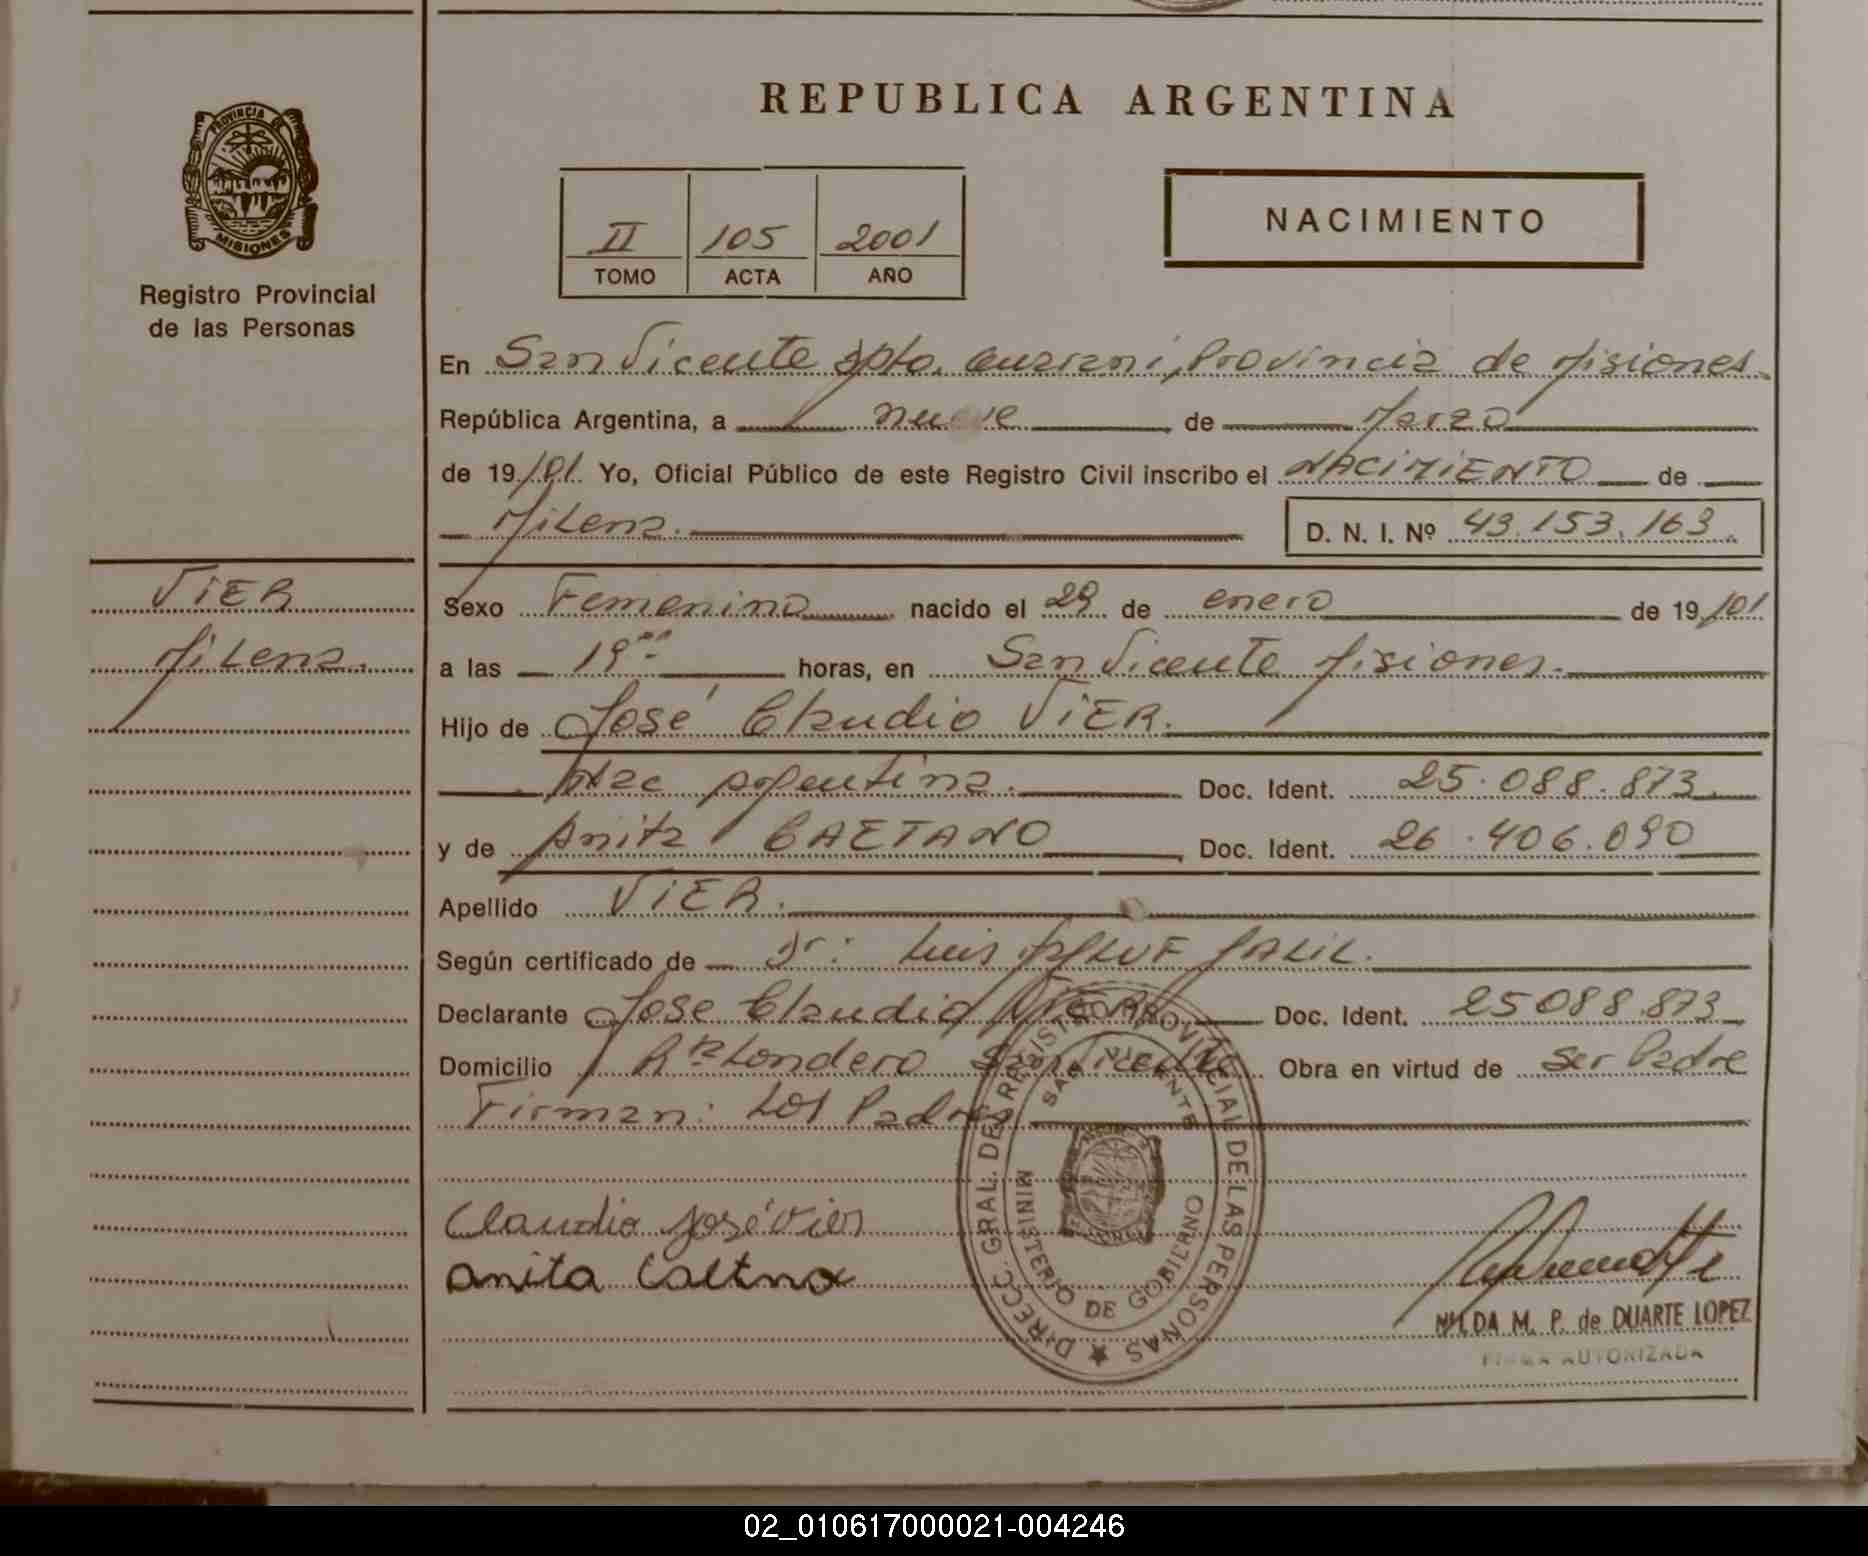 REPUBLICA ARGENTINA
PROVINCIA DE
MISIONES
Registro Provincial
de las Personas
II 105 2001
TOMO ACTA AÑO
NACIMIENTO
En San Vicente dpto. Guarani, Provincia de Misiones
República Argentina, a nueve de Marzo
de 19/01 Yo, Oficial Público de este Registro Civil inscribo el NACIMIENTO de
Milena. D. N. I. Nº 43.153.163.
VIER
Milena.
Sexo Femenino nacido el 29 de enero de 19/01
a las 19 horas, en San Vicente Misiones.
Hijo de José Claudio VIER.
Nac Argentina. Doc. Ident. 25.088.873
y de Anita CAETANO Doc. Ident. 26.406.090
Apellido VIER.
Según certificado de Dr: Luis JALIL.
Declarante Jose Claudio VIER Doc. Ident. 25088.873
Domicilio Londero San Vicente Obra en virtud de Ser Padre
Firman: Los Padres
Claudio José Vier
anita
DIRECC. GRAL. DEL REGISTRO PROVINCIAL DE LAS PERSONAS
SAN VICENTE
MINISTERIO DE GOBIERNO
NILDA M. P. de DUARTE LOPEZ
FIRMA AUTORIZADA
02_010617000021-004246